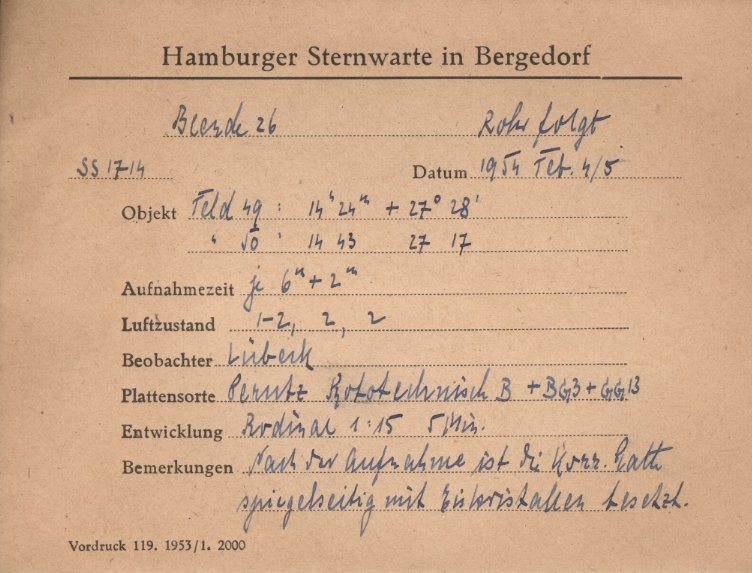 Hamburger Sternwarte in Bergedorf
Blende 26 Rohr folgt
SS 1714 Datum 1954 Feb. 4/5
Objekt Feld 49 : 14h 24m + 27° 28'
" 50 " 14 43 27 17
Aufnahmezeit je 6m + 2m
Luftzustand 1-2, 2, 2
Beobachter Lübeck
Plattensorte Perutz Fototechnisch B + BG3 + GG13
Entwicklung Rodinal 1:15 5 Min.
Bemerkungen Nach der Aufnahme ist die Korr. Platte
spiegelseitig mit Eiskristallen besetzt.
Vordruck 119. 1953/1. 2000